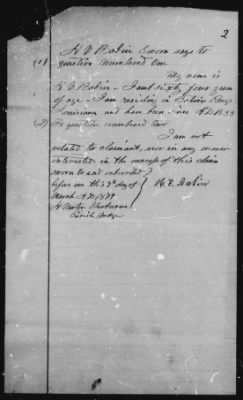 2
H. V. Babin Sworn says to
(1) question numbered One
My name is
H. V. Babin - I am sixty four years
of age - I am residing in Baton Rouge
Louisiana and have been since A.D. 1833
(2) To question numbered two
I am not
related to claimant, nor in any manner
interested in the success of this claim
sworn to and subscribed
before me this 3d day of
March A.D. 1879
H. V. Babin
Parish Judge